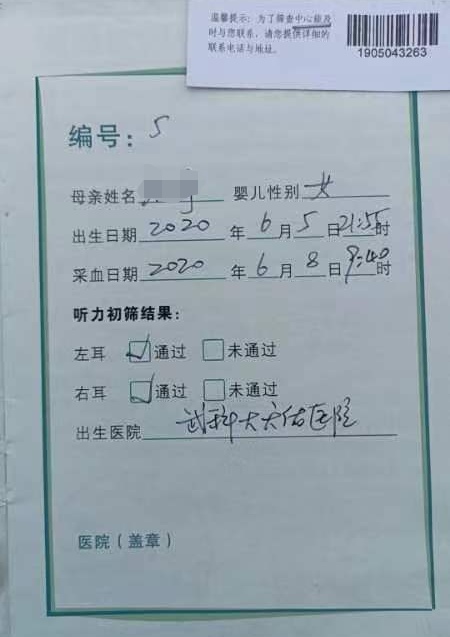 温馨提示：为了筛查中心能及
时与您联系，请您提供详细的
联系电话与地址。
1905043263
编号：5
母亲姓名 婴儿性别 女
出生日期 2020 年 6 月 5 日 21:55 时
采血日期 2020 年 6 月 8 日 9:40 时
听力初筛结果：
左耳 ☑通过 □未通过
右耳 ☑通过 □未通过
出生医院 武科大天佑医院
医院（盖章）